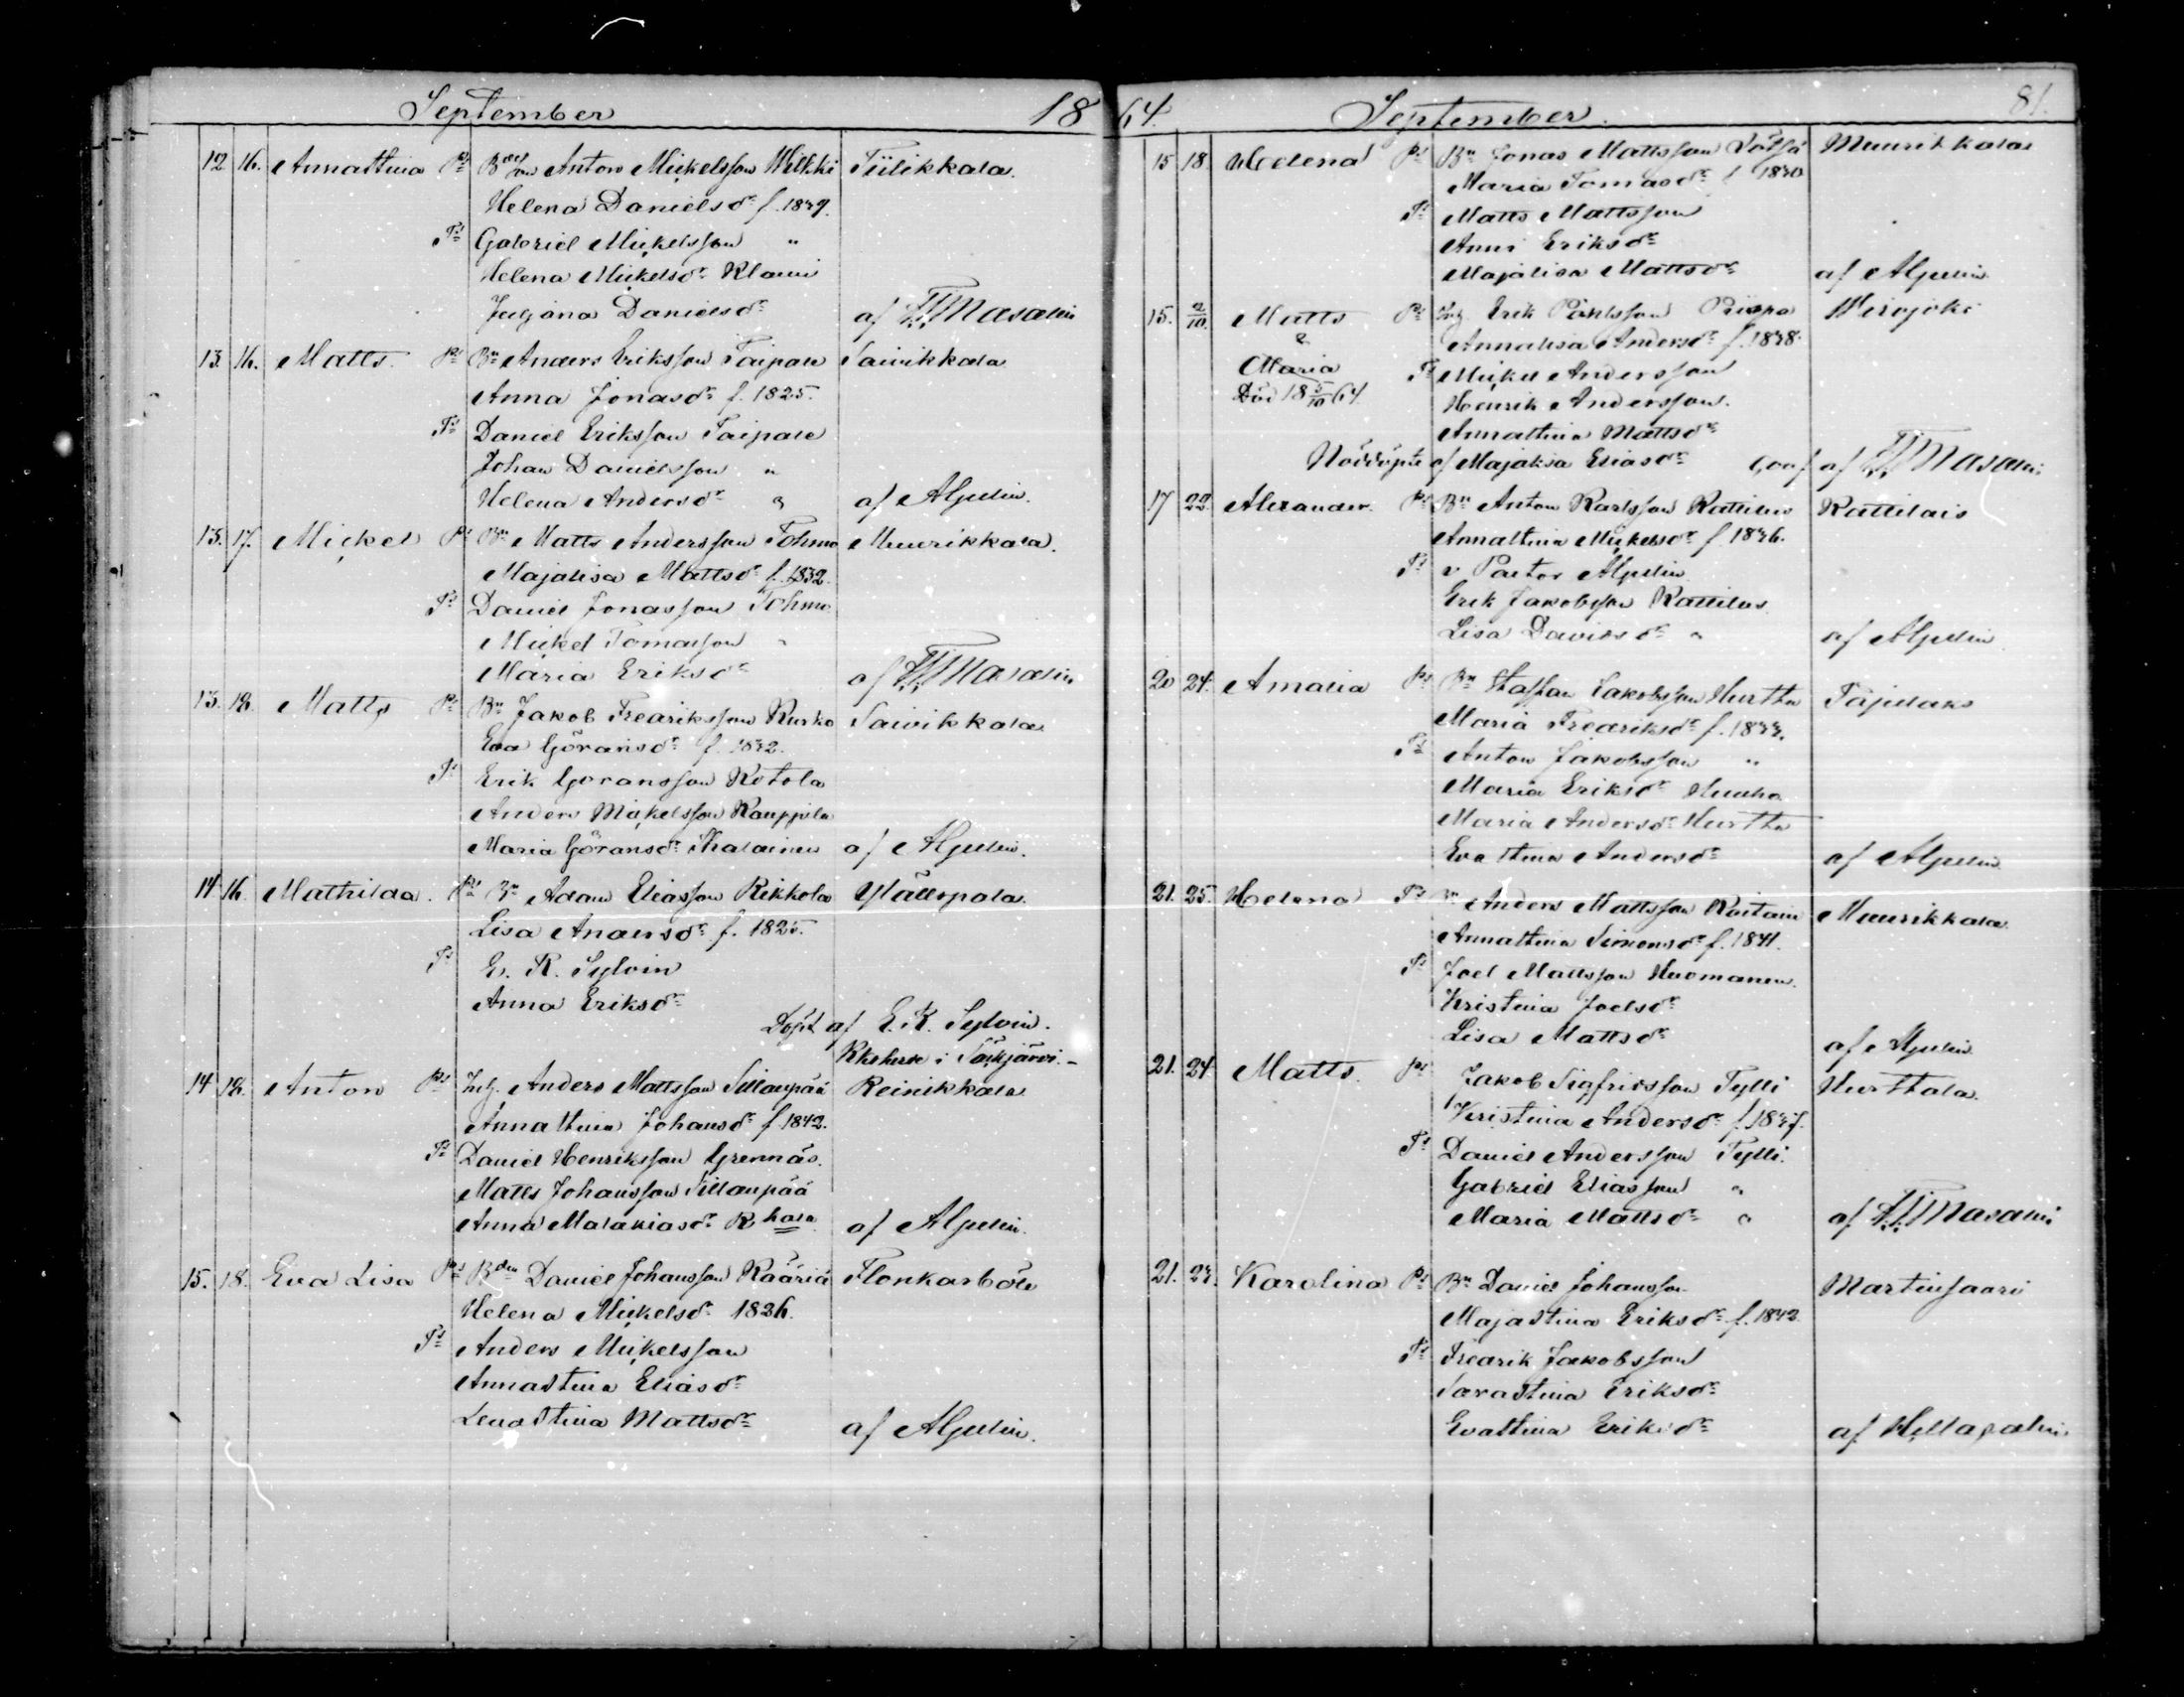 September 18
12. 16. Annastina Ps Anton Mickelsson Wilkki Tiilikkala.
Helena Danielsdr f. 1839.
Ts Gabriel Mickelsson "
Helena Mickelsdr Klami
Juljana Danielsdr af Masalin
13. 16. Matts. Ps Bn Anders Eriksson Taipale Saivikkala
Anna Jonasdr f. 1825.
Ts Daniel Eriksson Taipale
Johan Danielsson "
Helena Andersdr " af Aljulin.
13. 17. Mickel Ps Bn Matts Andersson Tohmo Muurikkala.
Majalisa Mattsdr f. 1832.
Ts Daniel Jonasson Tohmo
Mickel Tomasson "
Maria Eriksdr af Masalin
13. 18. Matts Ps Bn Jakob Fredriksson Kurko Saivikkala
Eva Göransdr f. 1832.
Ts Erik Göransson Kotola
Anders Mickelsson Kauppila
Maria Göransdr af Aljulin.
14 16. Mathilda. Ps Bn Adam Eliasson Rikkola
Lisa Andersdr f. 1825.
Ts E. K. Sylvin
Anna Eriksdr
Döpt af E. K. Sylvin.
i Säkjärvi.-
14 18. Anton Ps Inh. Anders Mattsson Sillanpää Reinikkala
Annastina Johansdr f 1842.
Ts Daniel Henriksson Grennäs.
Matts Johansson Sillanpää
Anna Malakiasdr af Aljulin.
15. 18. Eva Lisa Ps Bdn Daniel Johansson Kääriä Flonkarböle
Helena Mickelsdr 1826.
Ts Anders Mickelsson
Annastina Eliasdr
Lenastina Mattsdr af Aljulin.
64. September. 81.
15 18. Helena Ps Bn Jonas Mattsson Muurikkala
Maria Tomasdr f 1830
Ts Matts Mattsson
Anni Eriksdr
Majalisa Mattsdr af Aljulin
15. 2/10. Matts Ps Inh Erik Prispa Wirojoki
& Annalisa Andersdr f. 1838.
Maria Ts Mickel Andersson
Död 18 5/10 64 Henrik Andersson.
Annastina Mattsdr
Nöddöpte af Majalisa Eliasdr af Masalin
17 22. Alexander. Ps Bn Anton Karlsson Kattilus Kattilais
Annastina Mickelsdr f 1836.
Ts v Pastor Aljulin
Erik Jakobsson Kattilus
Lisa Davidsdr " af Aljulin
20 24. Amalia Ps Bn Staffan Jakobsson Hurtta Pajulaks
Maria Fredriksdr f. 1833.
Ts Anton Jakobsson "
Maria Eriksdr
Maria Andersdr Hurtta
Eva Stina Andersdr af Aljulin
21. 25. Helena Ps Bn Anders Mattsson Muurikkala
Annastina Simonsdr f. 1841.
Ts Joel Mattsson Huomanen.
Kristina Joelsdr
Lisa Mattsdr af Aljulin
21. 24 Matts. Ps Jakob Sigfridsson Tylli Hurttala.
Kristina Andersdr f. 1837.
Ts Daniel Andersson Tylli.
Gabriel Eliasson "
Maria Mattsdr " af Masalin
21. 27. Karolina Ps Bn Daniel Johansson Martinsaari
Majastina Eriksdr f. 1842
Ts Fredrik Jakobsson
Sarastina Eriksdr
Evastina Eriksdr af